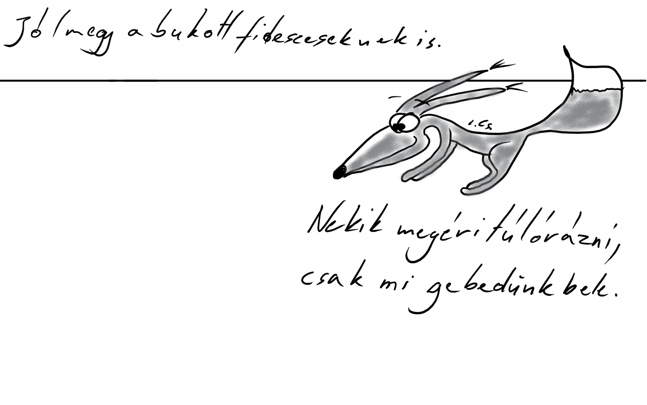 Jól megy a bukott fideszeseknek is.
i.Cs.
Nekik megéri túlórázni,
csak mi gebedünk bele.